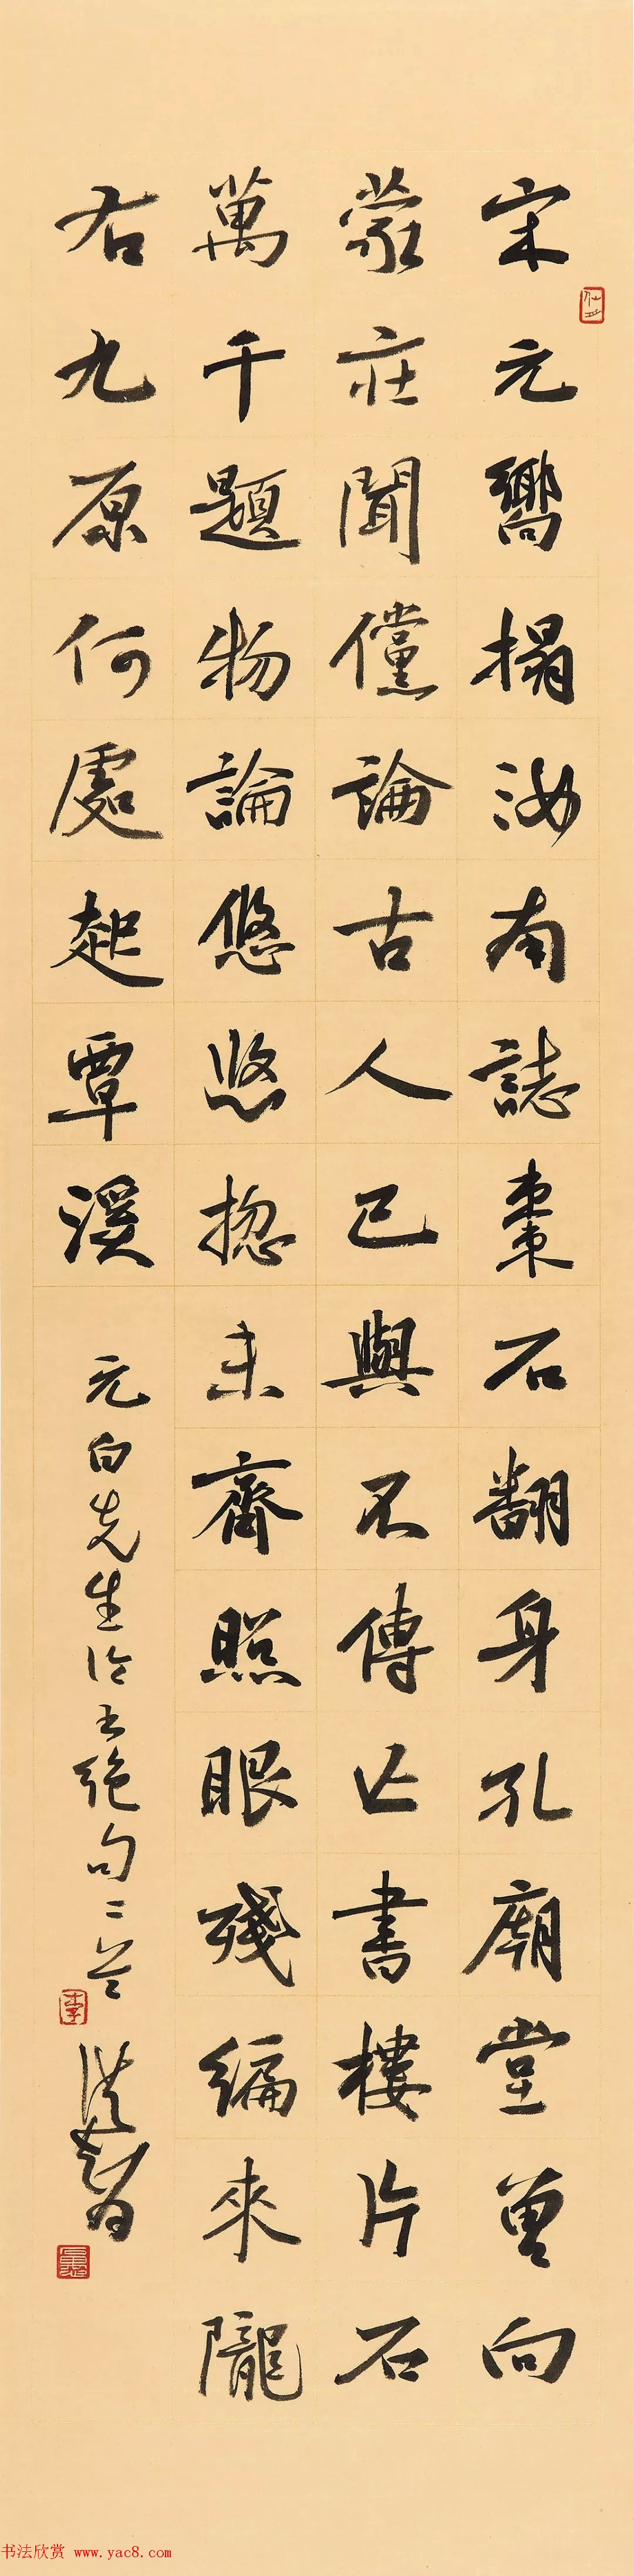 宋元嚮搨汝南誌棗石翻身孔廟堂曾向
蒙莊聞儻論古人已與不傳亡書樓片石
萬千題物論悠悠揔未齊照眼殘編來隴
右九原何處起覃溪
元白先生论书绝句二首
李
洪智
书法欣赏 www.yac8.com